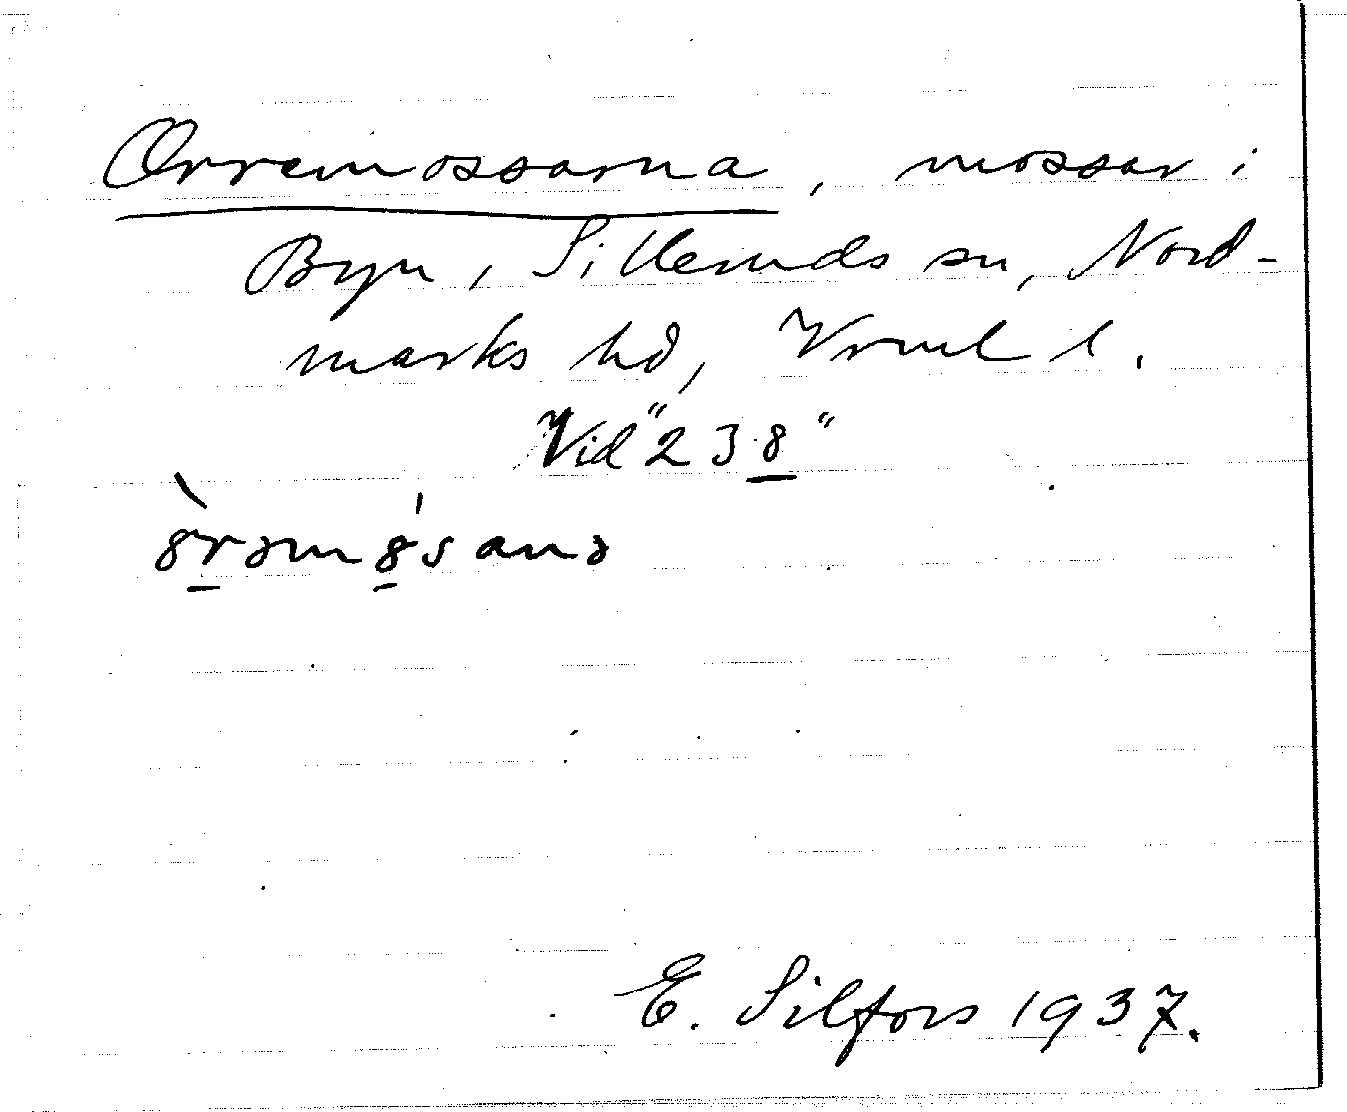 Orremossarna, mossar i
Byn, Silleruds sn, Nord-
marks hd, Vrml l.
Vid "238"
E. Silfors 1937.